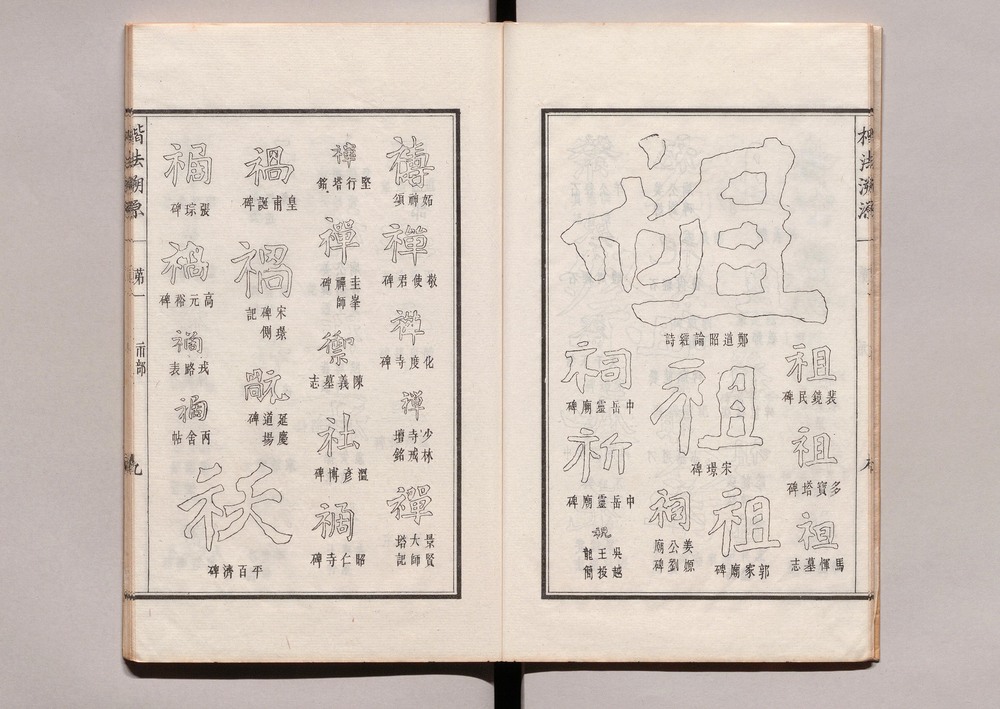 楷法溯源
祖
鄭道昭論經詩
祖
裴鏡民碑
祖
多寶塔碑
祖
馬惲墓志
祖
宋璟碑
祖
郭家廟碑
祠
姜嫄
公劉
廟碑
祠
中岳靈廟碑
祈
中岳靈廟碑
祝
吳越
王投
龍簡
禱
妬神頌
禪
敬使君碑
禪
化度寺碑
禪
少林
寺戒
壇銘
禪
景賢
大師
塔記
禪
堅行塔銘
禪
圭峯
禪師
碑
禦
陳義墓志
社
溫彥博碑
禍
昭仁寺碑
禍
皇甫誕碑
禍
宋璟
碑側
記
延慶
道場
碑
祅
平百濟碑
禍
張琮碑
禍
高元裕碑
禍
戎路表
禍
丙舍帖
楷法溯源
第一
示部
九